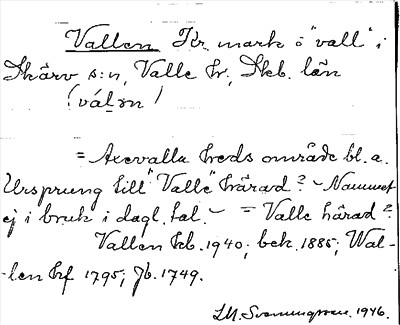 Vallen Kr. mark o "vall" i
Skärv s:n, Valle hr, Skb. län
(vál̠ən)
= Axevalla heds område bl. a.
Ursprung till "Valle" härad? - Namnet
ej i bruk i dagl. tal. - = Valle härad?
Vallen kb. 1940; bek. 1885; Wal-
-len hf 1795; Jb. 1749.
1946.